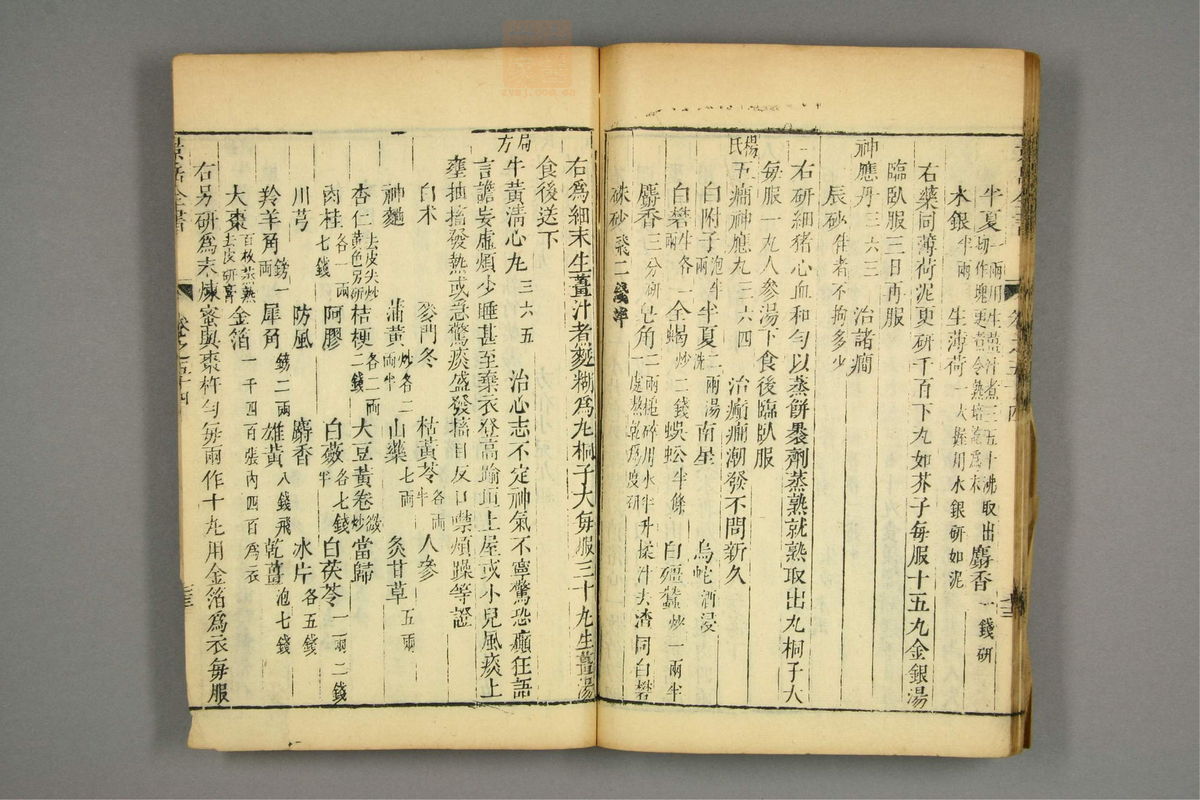 半夏一兩用生薑汁煮三五十沸取出切作塊更煮令熟焙乾爲末 麝香一錢研
水銀半兩 生薄荷一大握用水銀研如泥
右藥同薄荷泥更研千百下丸如芥子每服十五丸金銀湯
臨臥服三日再服
神應丹三六三 治諸癇
辰砂佳者不拘多少
右研細猪心血和勻以蒸餅裹劑蒸熟就熟取出丸桐子大
每服一丸人參湯下食後臨臥服
楊氏五癇神應丸三六四 治癲癇潮發不問新久
白附子炮半兩 半夏二兩湯洗 南星 烏蛇酒浸
白礬各一兩半 全蝎炒二錢 蜈蚣半條 白殭蠶炒一兩半
麝香三分研 皂角二兩槌碎用水半升揉汁去渣同白礬一處蒸乾爲度研
硃砂飛二錢半
右爲細末生薑汁煮麪糊爲丸桐子大每服三十丸生薑湯
食後送下
局方牛黃清心丸三六五 治心志不定神氣不寧驚恐癲狂語
言譫妄虛煩少睡甚至棄衣登高踰垣上屋或小兒風痰上
壅抽搐發熱或急驚痰盛發搐目反口噤煩躁等證
白术 麥門冬 枯黃芩各半兩 人參
神麯 蒲黃炒各二兩半 山藥七兩 炙甘草五兩
杏仁去皮尖炒黃色另研 桔梗各二兩二錢 大豆黃卷微炒 當歸
肉桂各一兩七錢 阿膠 白蘞各七錢半 白茯苓一兩二錢
川芎 防風 麝香 冰片各五錢
羚羊角一兩 犀角二兩 雄黃八錢飛 乾薑泡七錢
大棗百枚蒸熟去皮研膏 金箔一千四百張內四百爲衣
右另研爲末煉蜜與棗杵勻每兩作十丸用金箔爲衣每服